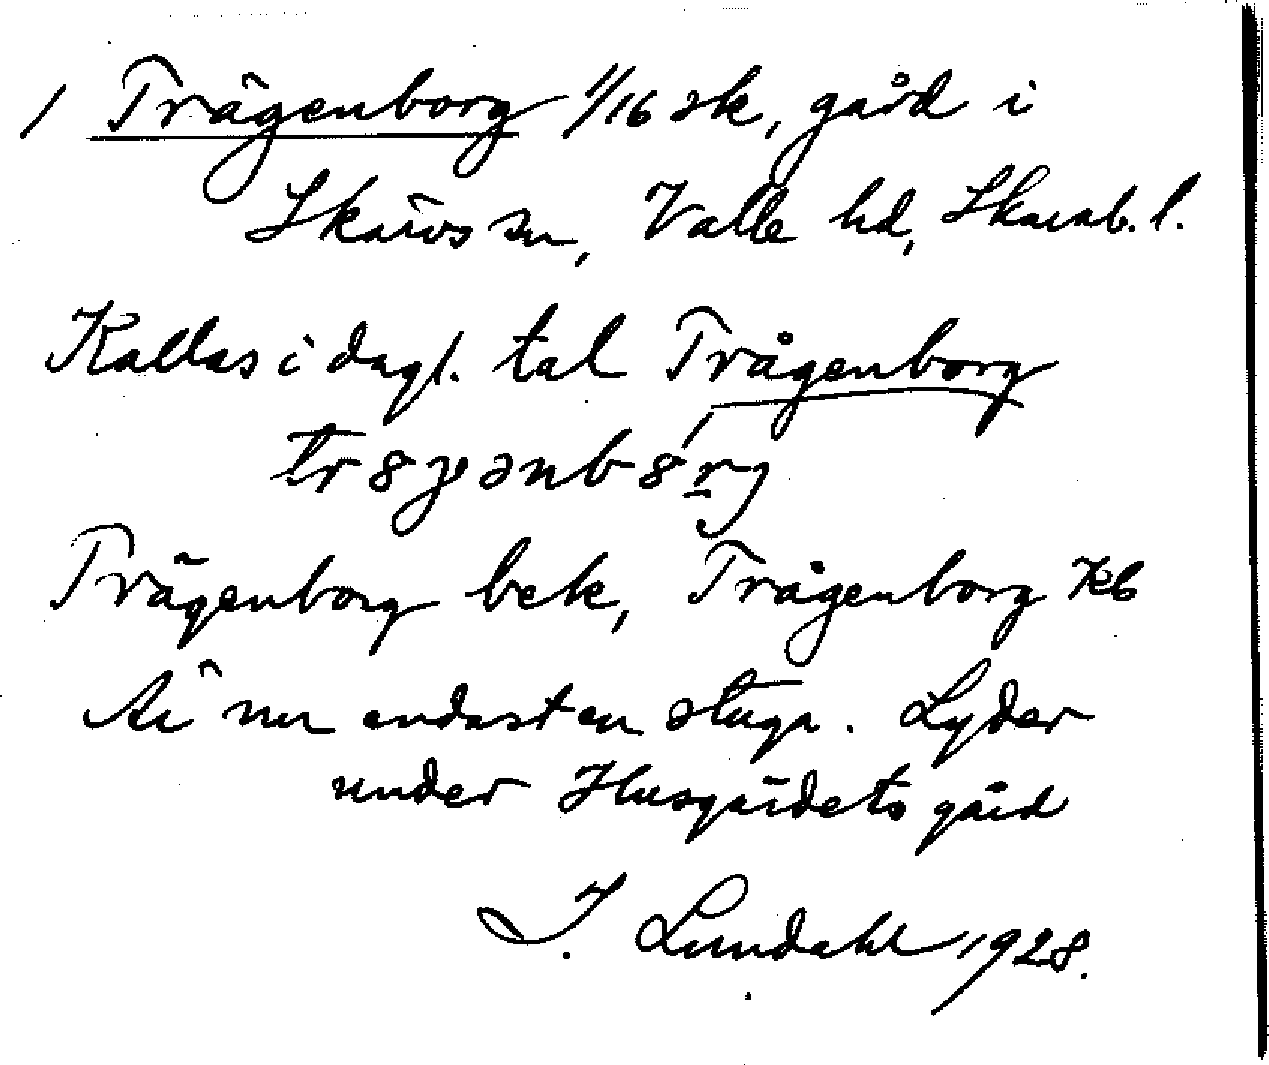 / Trägenborg 1/16 sk, gård i
Skärvs sn, Valle hd, Skarab. l.
Kallas i dagl. tal Trågenborg
Trägenborg bek, Trågenborg Kb
Är nu endast en stuga. Lyder
under Husgärdets gård
I. Lundahl 1928.